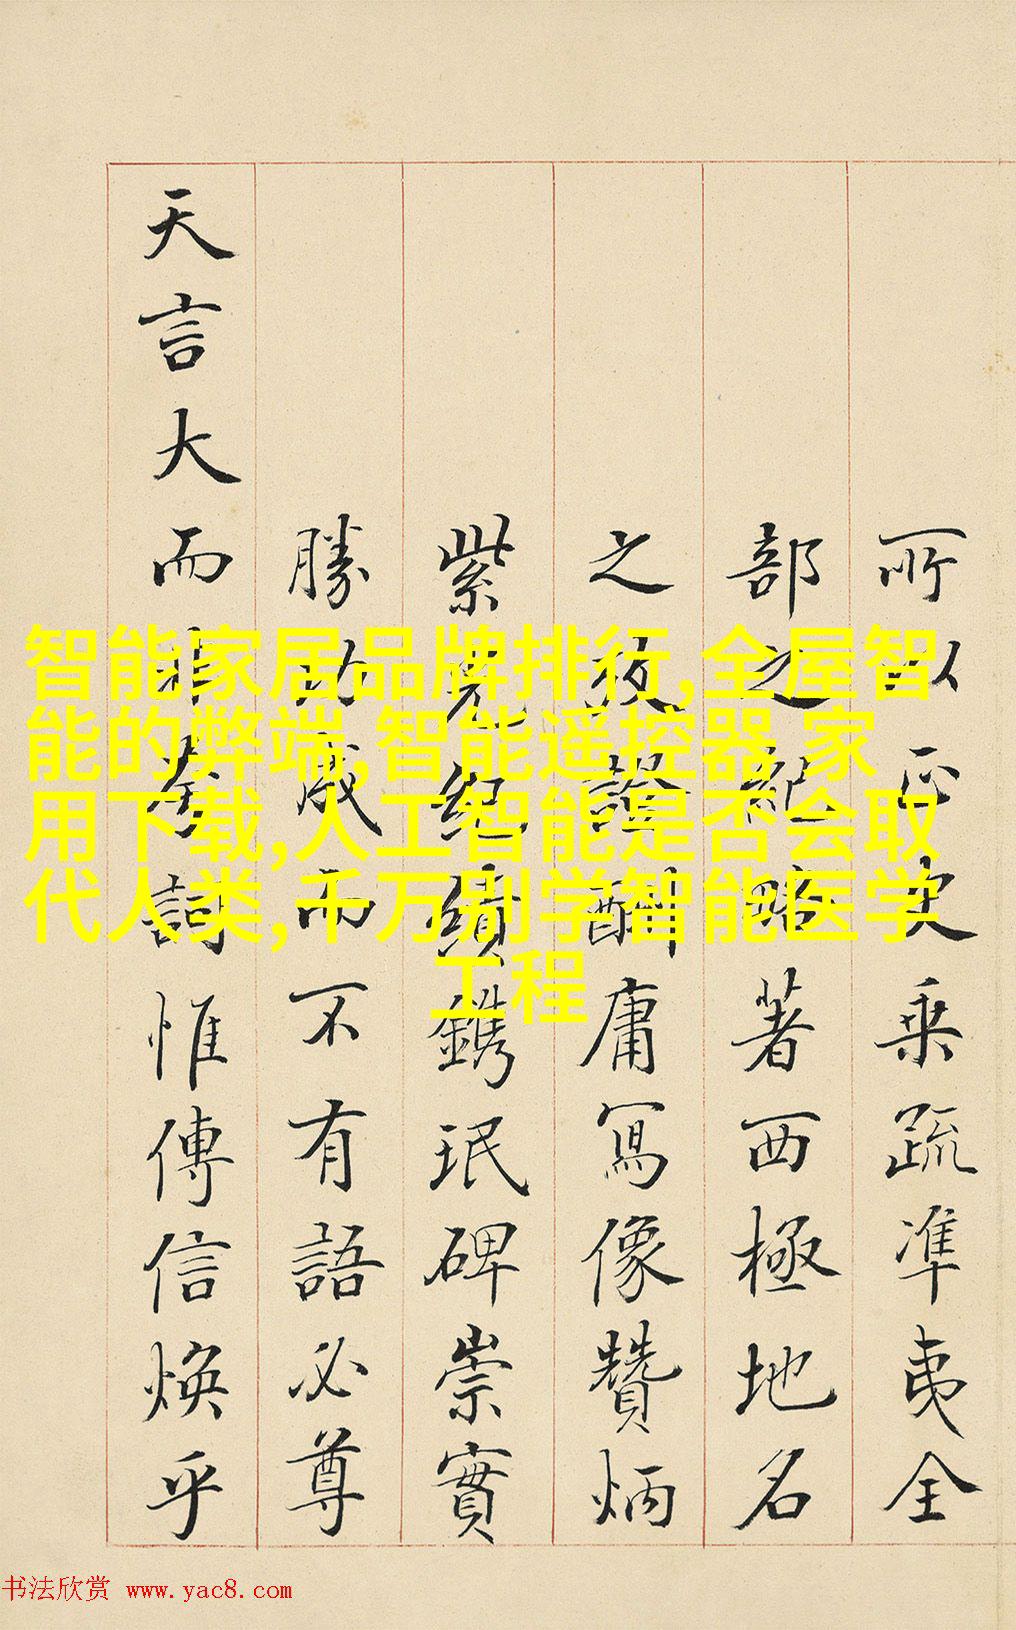 所以正史乘疏準夷全
部之紀略著西極地名
之證酬庸寫像贊炳
紫光紀績鐫珉碑崇實
勝功成而不有語必尊
天言大而非夸詞惟傳信煥乎
智能家居品牌排行,全屋智
能的弊端,智能遥控器 家
用下载,人工智能是否会取
代人类,千万别学智能医学
工程
书法欣赏 www.yac8.com